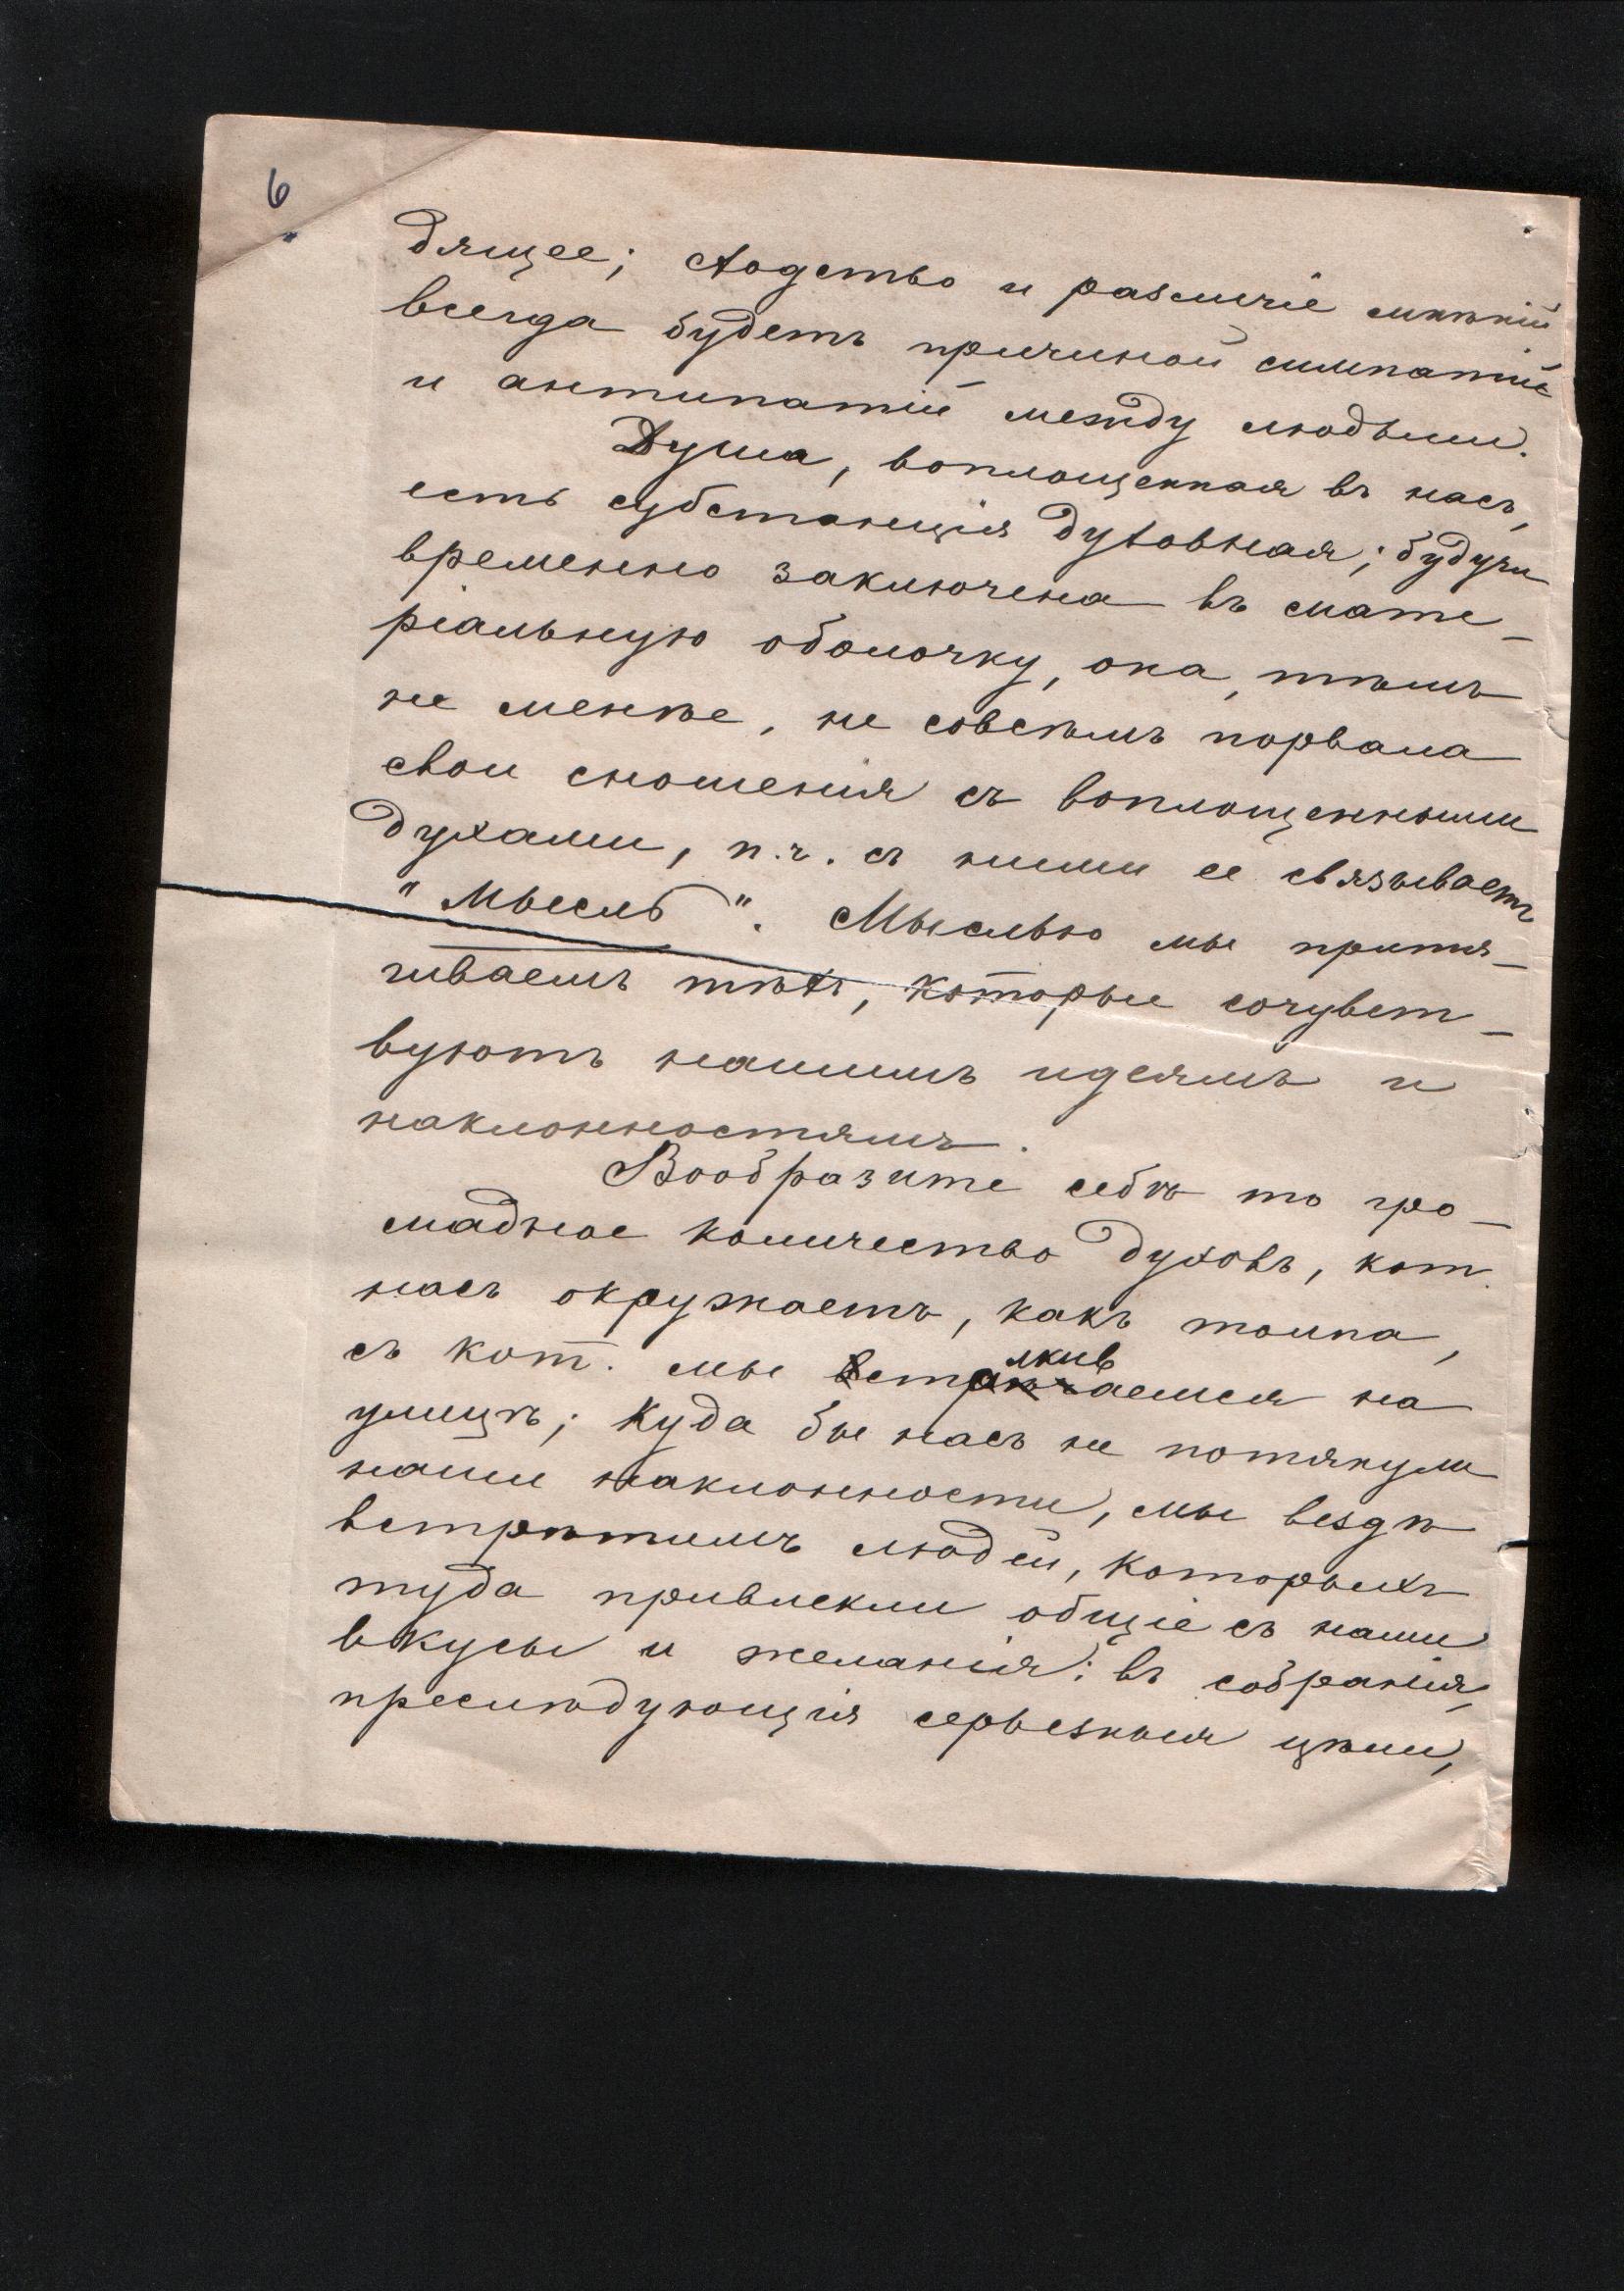 6
дящее; сходство и различіе мнѣній
всегда будетъ причиной симпатій
и антипатій между людьми.
Душа, воплощенная въ насъ,
есть субстанція духовная; будучи
временно заключена въ мате-
ріальную оболочку, она, тѣмъ
не менѣе, не совсѣмъ порвала
свои сношенія съ воплощенными
духами, п.ч. съ ними ее связываетъ
"Мысль". Мыслью мы притя-
гиваемъ тѣхъ, которые сочувст-
вуютъ нашимъ идеямъ и
наклонностямъ.
Вообразите себѣ то гро-
мадное количество духовъ, кот.
насъ окружаетъ, какъ толпа,
съ кот. мы сталкиваемся на
улицѣ; куда бы насъ не потянули
наши наклонности, мы вездѣ
встрѣтимъ людей, которыхъ
туда привлекли общіе съ нами
вкусы и желанія: въ собранія,
преслѣдующія серьезныя цѣли,